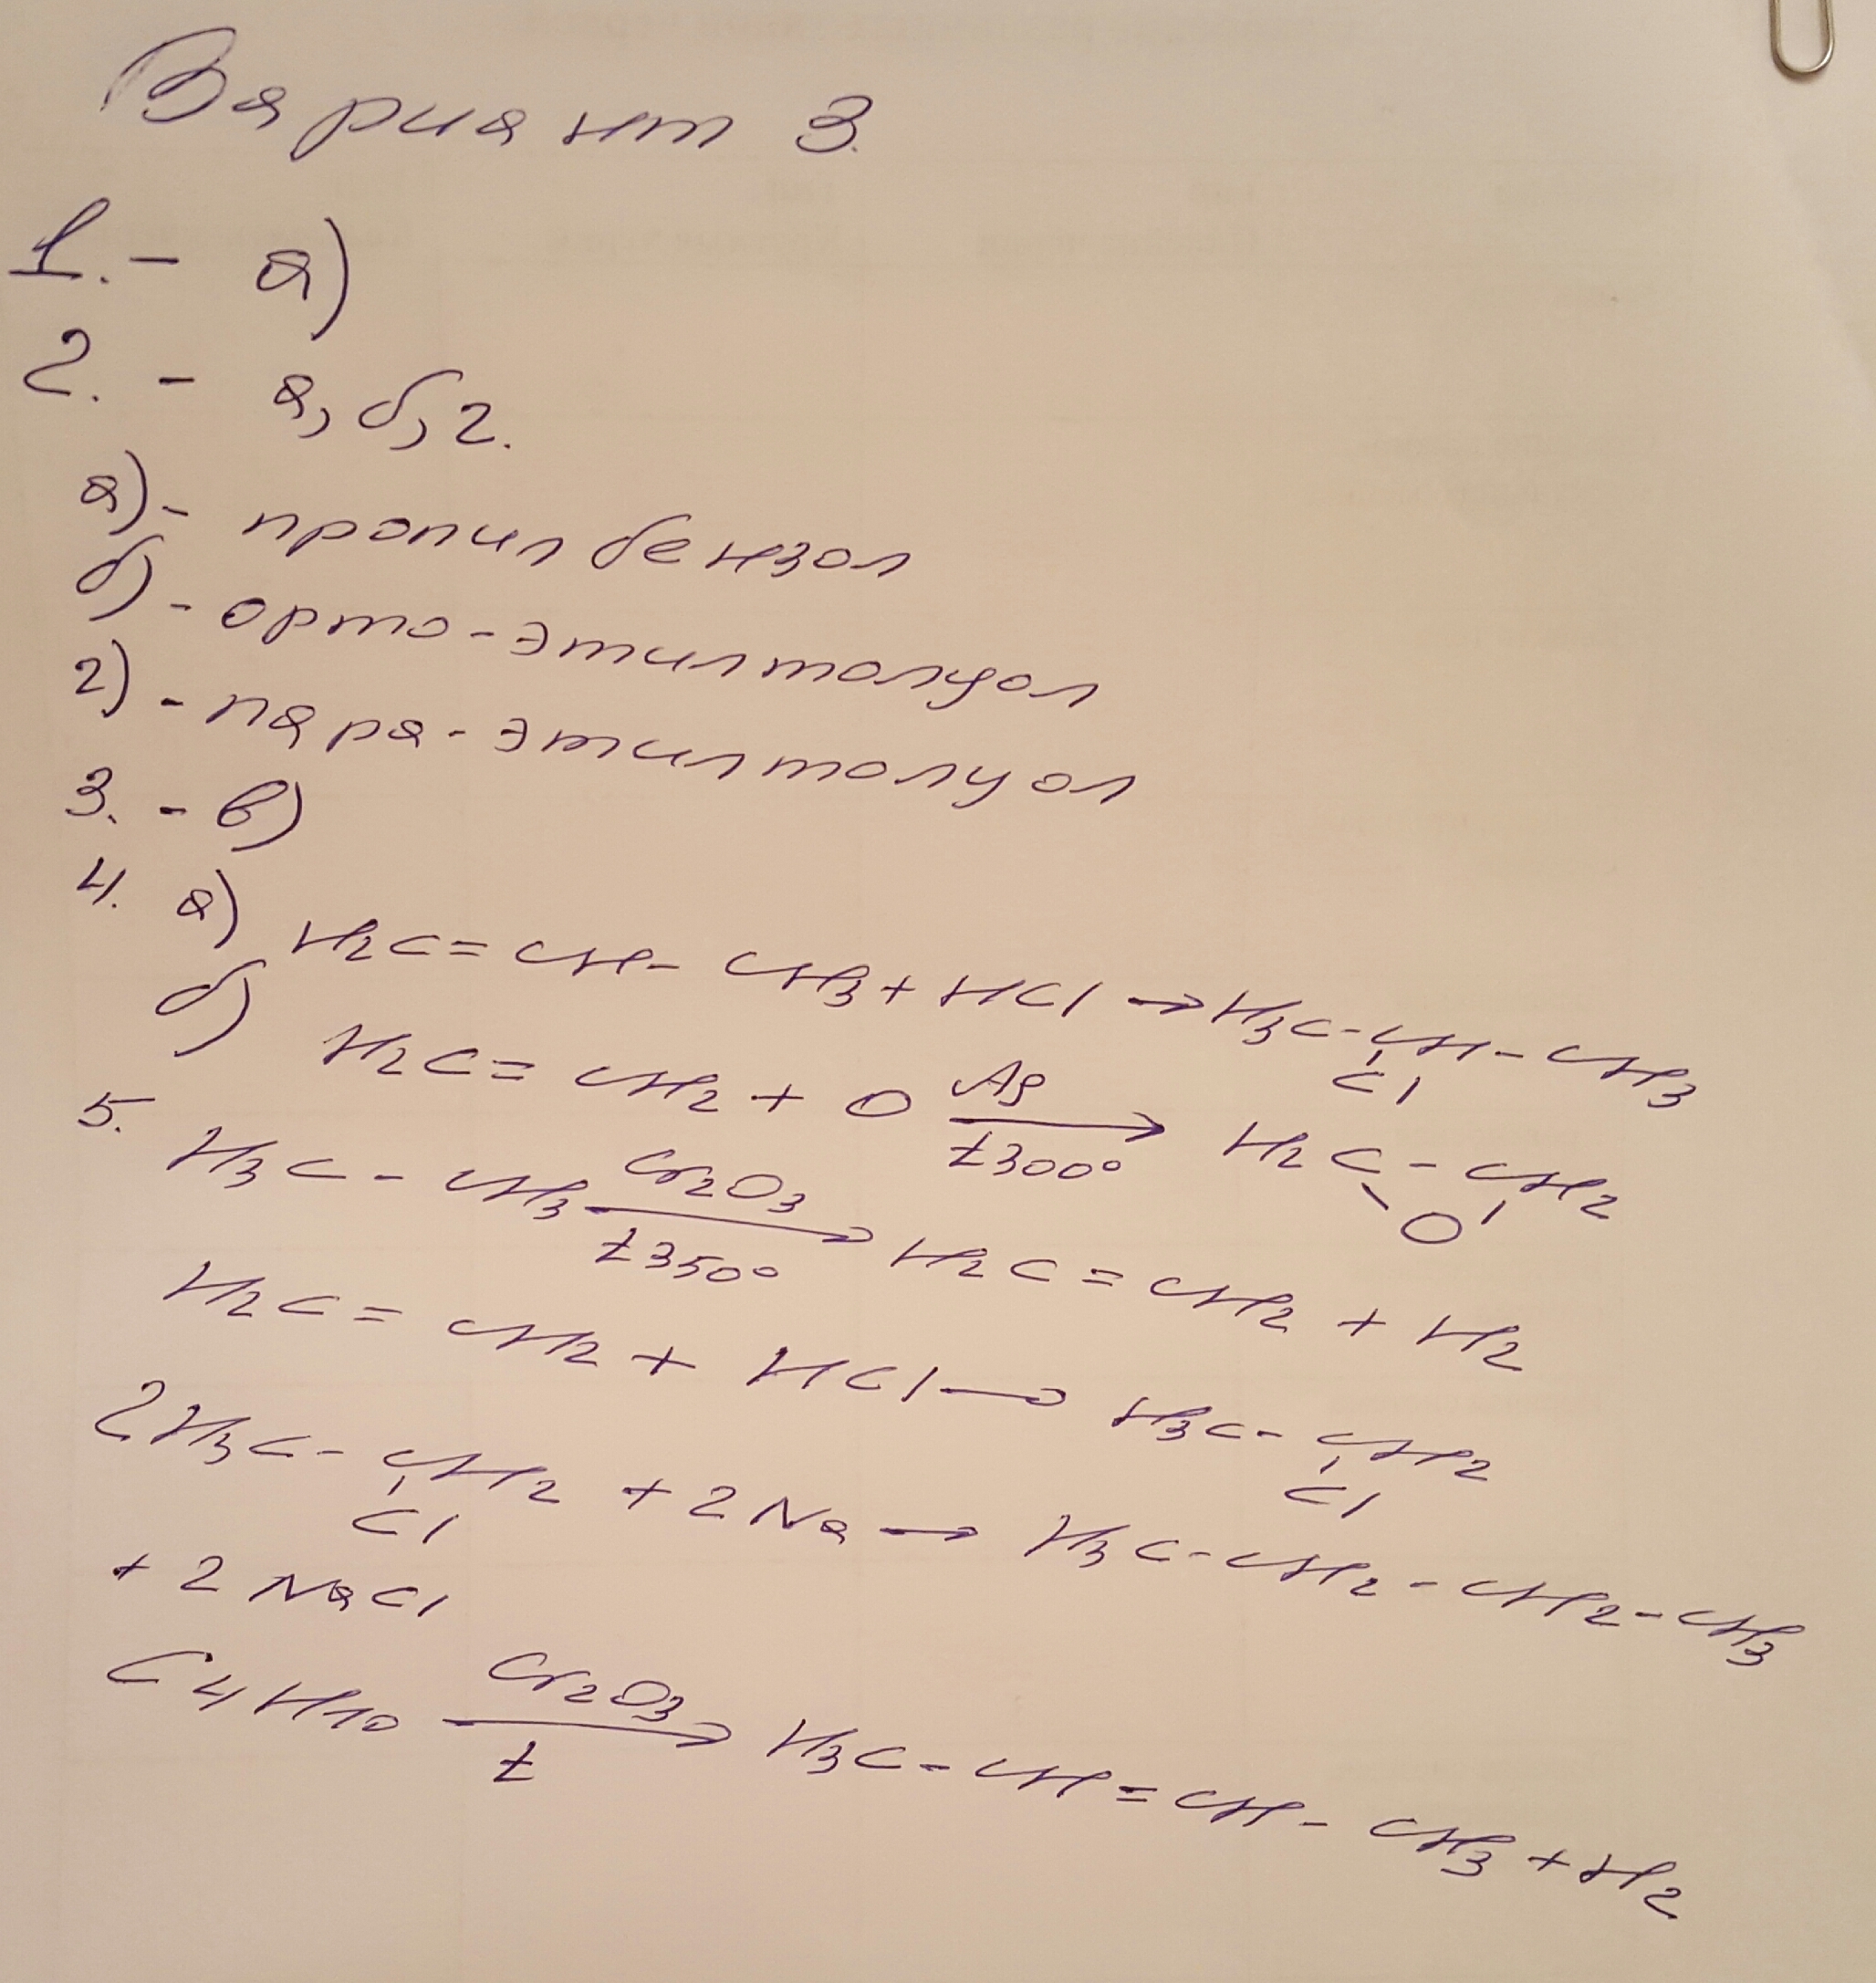 Вариант 3.
1. - а)
2. - а, б, г.
а) - пропилбензол
б) - орто-этилтолуол
г) - пара-этилтолуол
3. - в)
4. а) H2C=CH-CH3+HCl→H3C-CH-CH3
Cl
б) H2C=CH2+O Ag t300° → H2C-CH2
O
5. H3C-CH3 Cr2O3 t350° → H2C=CH2+H2
H2C=CH2+HCl→H3C-CH2
Cl
2H3C-CH2+2Na→H3C-CH2-CH2-CH3
Cl
+2NaCl
C4H10 Cr2O3 t → H3C-CH=CH-CH3+H2